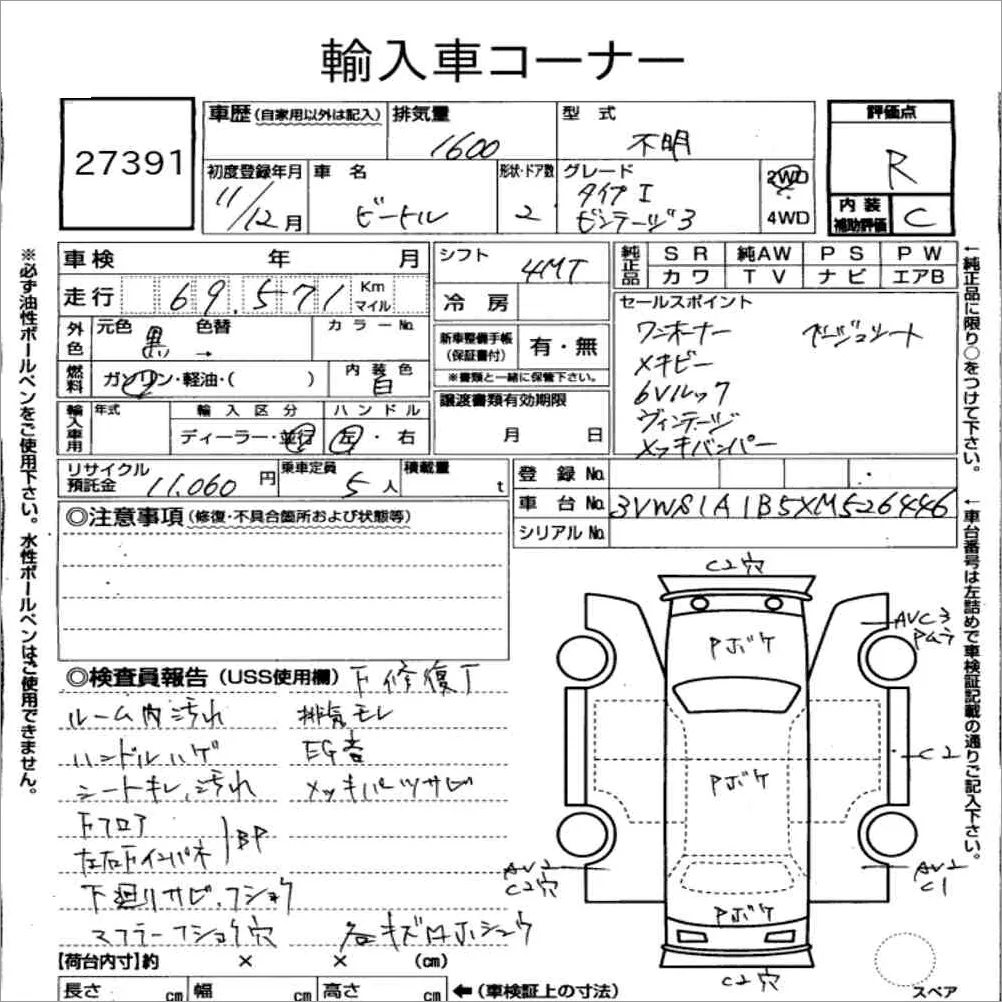 輸入車コーナー
27391
車歴 (自家用以外は記入)
排気量 1600
型式 不明
評価点 R
初度登録年月 11/12月
車名 ビートル
形状・ドア数 2
グレード タイプI ビンテージ3
2WD
4WD
内装補助評価 C
車検 年 月
シフト 4MT
純正品 SR 純AW PS PW
カワ TV ナビ エアB
走行 69,571 Km マイル
冷房
セールスポイント
ワンオーナー ベージュシート
メキビー
6Vルック
ヴィンテージ
メッキバンパー
外色 元色 黒 色替 → カラーNo.
新車整備手帳(保証書付) 有・無
※書類と一緒に保管下さい。
燃料 ガソリン・軽油・( )
内装色 白
輸入車用 年式 輸入区分 ハンドル
ディーラー・並行 左・右
譲渡書類有効期限
月 日
リサイクル預託金 11,060円
乗車定員 5人
積載量 t
登録No.
車台No. 3VWS1A1B5XM526446
シリアルNo.
◎注意事項 (修復・不具合箇所および状態等)
◎検査員報告 (USS使用欄) 下修復了
ルーム内汚れ 排気モレ
ハンドルハゲ EG音
シートキレ、汚れ メッキパーツサビ
下フロア
左右下インパネ BP
下廻りサビ、フショウ
マフラーフショク穴 各キズ口ホシュウ
【荷台内寸】約 × × (cm)
長さ cm 幅 cm 高さ cm ←(車検証上の寸法)
※必ず油性ボールペンをご使用下さい。水性ボールペンはご使用できません。
←純正品に限り○をつけて下さい。
←車台番号は左詰めで車検証記載の通りご記入下さい。
C2穴
AVC3
Pボケ
C2
Pボケ
AV2
C2穴
AV2
C1
Pボケ
C2穴
スペア